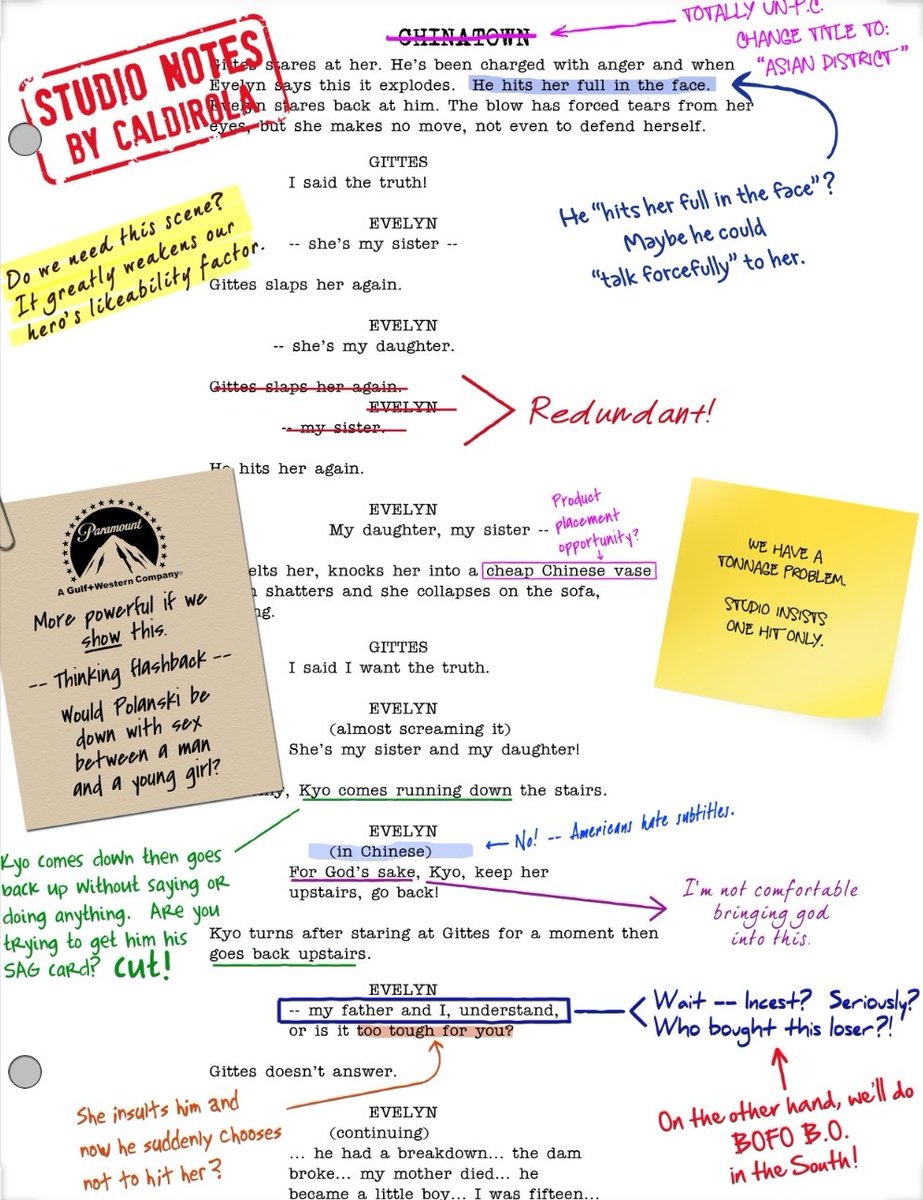 STUDIO NOTES
BY CALDIROLA
CHINATOWN
TOTALLY UN-P.C.
CHANGE TITLE TO:
"ASIAN DISTRICT"
Gittes stares at her. He's been charged with anger and when
Evelyn says this it explodes. He hits her full in the face.
Evelyn stares back at him. The blow has forced tears from her
eyes, but she makes no move, not even to defend herself.
GITTES
I said the truth!
He "hits her full in the face"?
Maybe he could
"talk forcefully" to her.
Do we need this scene?
It greatly weakens our
hero's likeability factor.
EVELYN
-- she's my sister --
Gittes slaps her again.
EVELYN
-- she's my daughter.
Gittes slaps her again.
EVELYN
-- my sister.
Redundant!
He hits her again.
EVELYN
My daughter, my sister --
Product
placement
opportunity?
elts her, knocks her into a cheap Chinese vase
shatters and she collapses on the sofa,
ng.
Paramount
A Gulf+Western Company
More powerful if we
show this.
-- Thinking flashback --
Would Polanski be
down with sex
between a man
and a young girl?
WE HAVE A
TONNAGE PROBLEM.
STUDIO INSISTS
ONE HIT ONLY.
GITTES
I said I want the truth.
EVELYN
(almost screaming it)
She's my sister and my daughter!
Kyo comes running down the stairs.
EVELYN
(in Chinese)
For God's sake, Kyo, keep her
upstairs, go back!
No! -- Americans hate subtitles.
Kyo comes down then goes
back up without saying or
doing anything. Are you
trying to get him his
SAG card? cut!
I'm not comfortable
bringing god
into this.
Kyo turns after staring at Gittes for a moment then
goes back upstairs.
EVELYN
-- my father and I, understand,
or is it too tough for you?
Wait -- Incest? Seriously?
Who bought this loser?!
Gittes doesn't answer.
She insults him and
now he suddenly chooses
not to hit her?
On the other hand, we'll do
BOFO B.O.
in the South!
EVELYN
(continuing)
... he had a breakdown... the dam
broke... my mother died... he
became a little boy... I was fifteen...